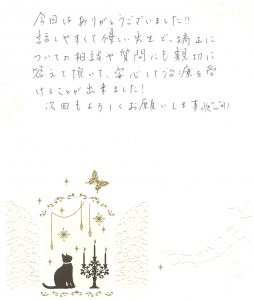 今回はありがとうございました!!
話しやすくて優しい先生で、矯正に
ついての相談や質問にも親切に
答えて頂いて、安心して治療を受
けることが出来ました!
次回もよろしくお願いします